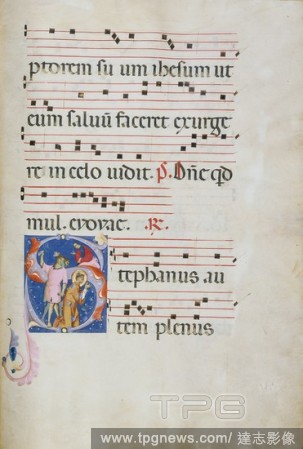 ptorem su um ihesum ut
eum saluū faceret exurge
re in celo uidit. P. Dñe qd
mul. evovae. R.
Stephanus au
tem plenus
TPG
www.tpgnews.com/達志影像